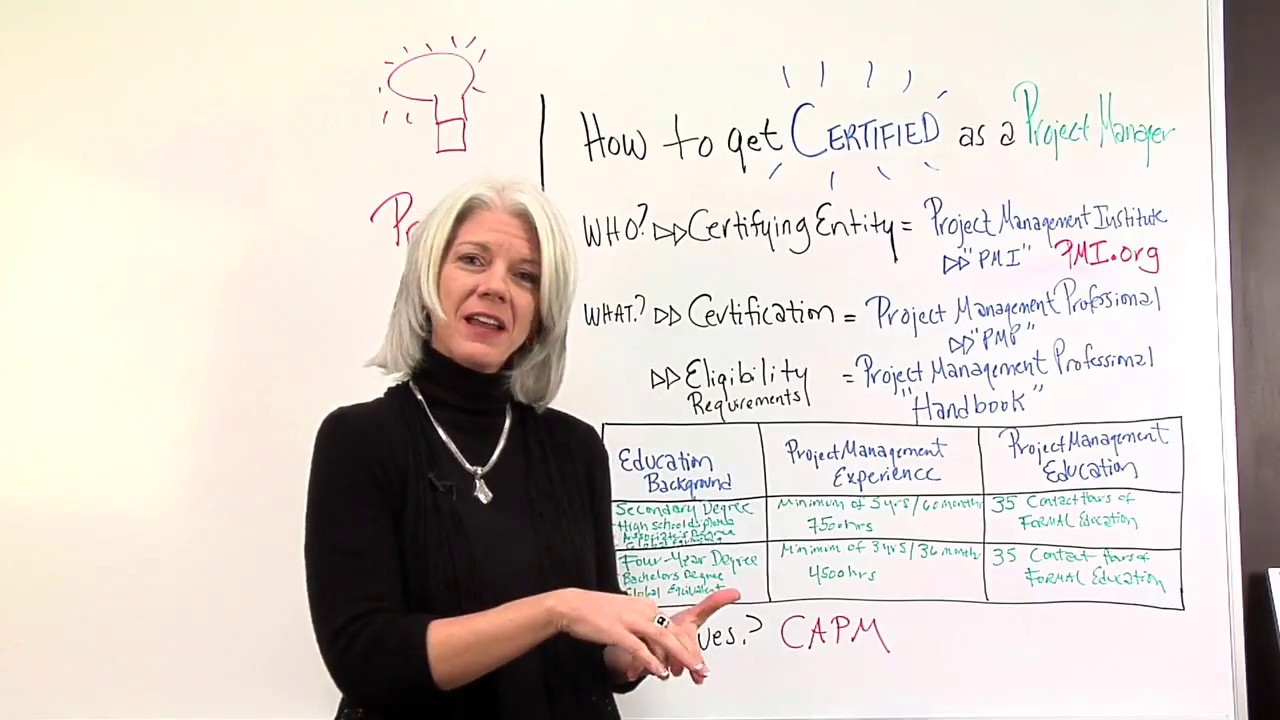 How to get CERTIFIED as a Project Manager
Pr
WHO? ▷▷ Certifying Entity = Project Management Institute
▷▷ "PMI" PMI.org
WHAT? ▷▷ Certification = Project Management Professional
▷▷ "PMP"
▷▷ Eligibility = Project Management Professional
Requirements "Handbook"
Education Background
Project Management Experience
Project Management Education
Secondary Degree
High school diploma
Associate's Degree
Minimum of 5yrs/60 months
7500hrs
35 Contact Hours of
FORMAL Education
Four-Year Degree
Bachelors Degree
Global Equivalent
Minimum of 3yrs/36 month
4500hrs
35 Contact Hours of
FORMAL Education
ves? CAPM